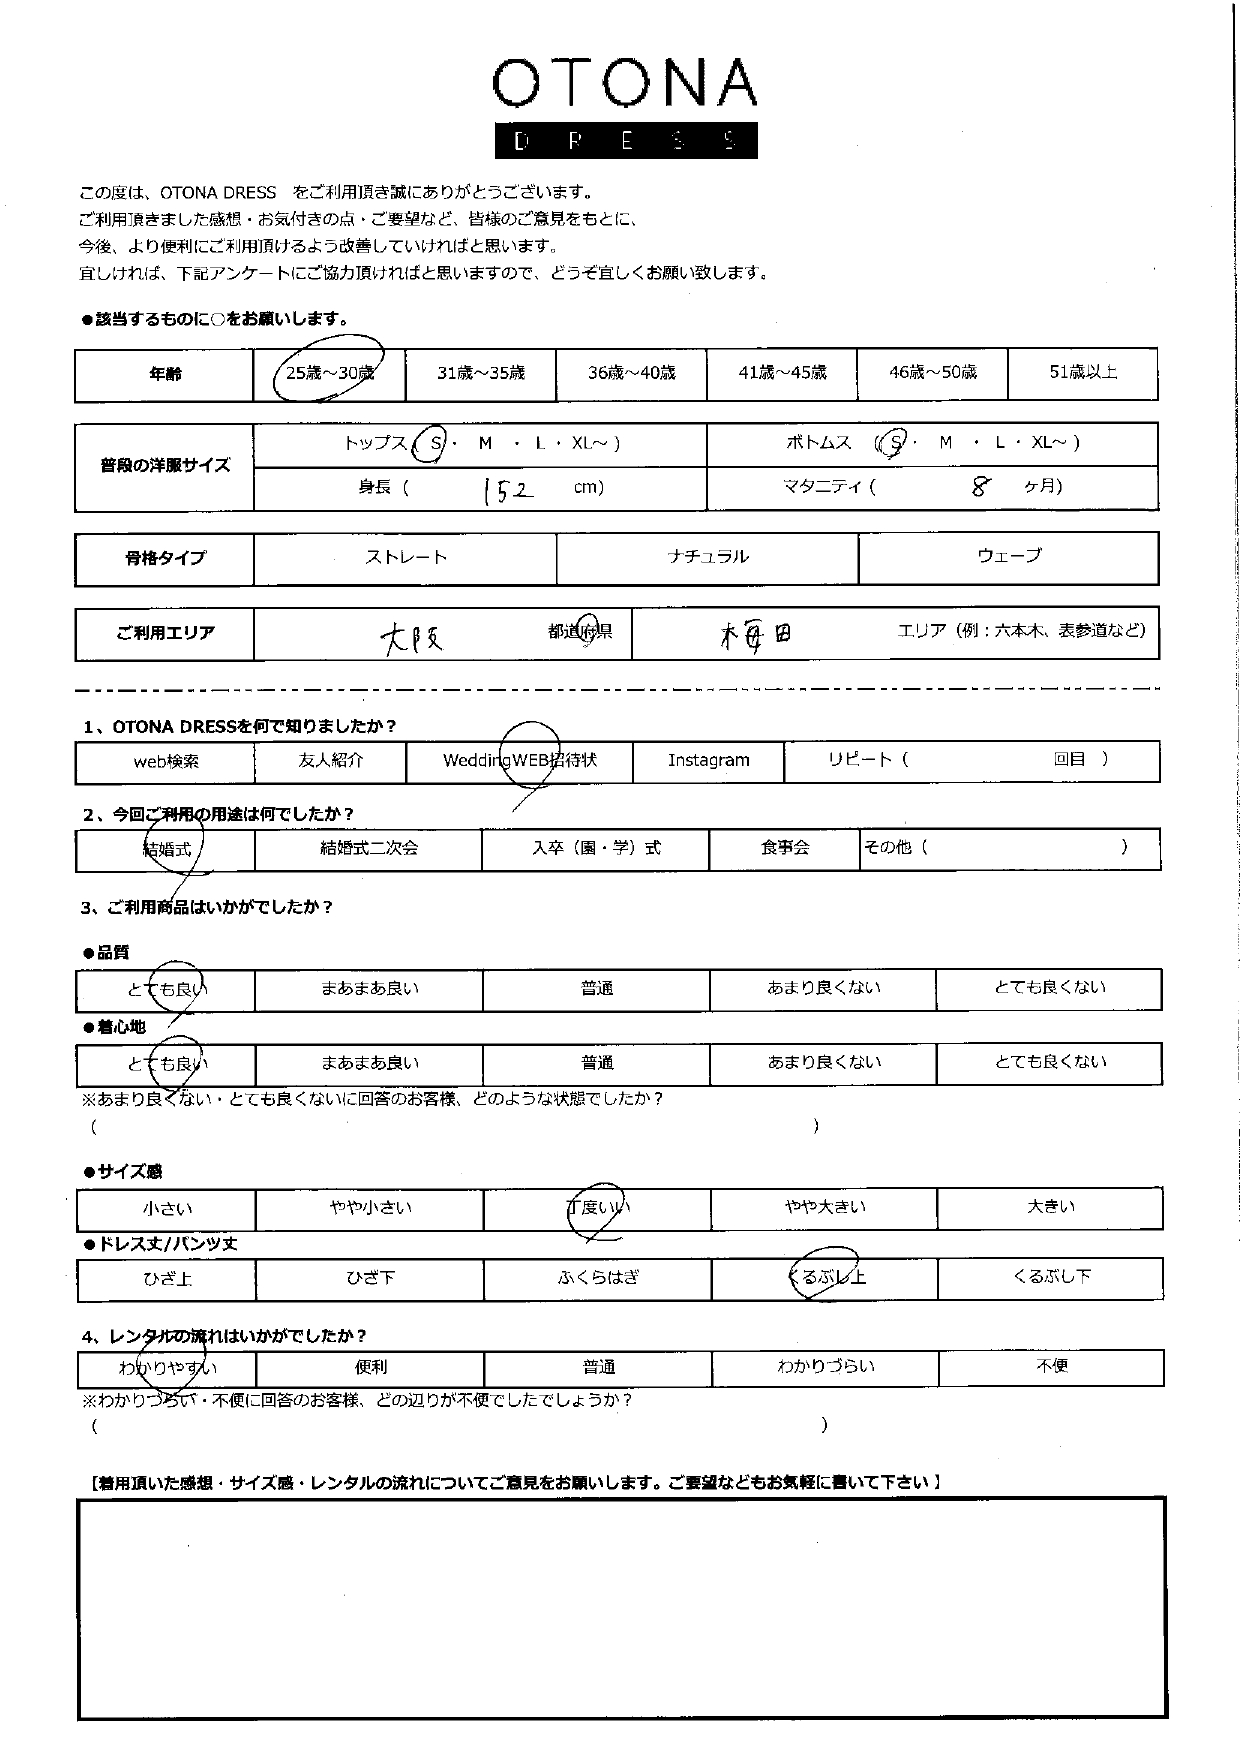 OTONA
DRESS
この度は、OTONA DRESS をご利用頂き誠にありがとうございます。
ご利用頂きました感想・お気付きの点・ご要望など、皆様のご意見をもとに、
今後、より便利にご利用頂けるよう改善していければと思います。
宜しければ、下記アンケートにご協力頂ければと思いますので、どうぞ宜しくお願い致します。
●該当するものに○をお願いします。
年齢 25歳～30歳 31歳～35歳 36歳～40歳 41歳～45歳 46歳～50歳 51歳以上
普段の洋服サイズ
トップス( S ・ M ・ L ・ XL～ ) ボトムス ( S ・ M ・ L ・ XL～ )
身長 ( 152 cm) マタニティ ( 8 ヶ月)
骨格タイプ ストレート ナチュラル ウェーブ
ご利用エリア 大阪 都道府県 梅田 エリア（例：六本木、表参道など）
1、OTONA DRESSを何で知りましたか？
web検索 友人紹介 WeddingWEB招待状 Instagram リピート（ 回目 ）
2、今回ご利用の用途は何でしたか？
結婚式 結婚式二次会 入卒（園・学）式 食事会 その他（ ）
3、ご利用商品はいかがでしたか？
●品質
とても良い まあまあ良い 普通 あまり良くない とても良くない
●着心地
とても良い まあまあ良い 普通 あまり良くない とても良くない
※あまり良くない・とても良くないに回答のお客様、どのような状態でしたか？
（ ）
●サイズ感
小さい やや小さい 丁度いい やや大きい 大きい
●ドレス丈/パンツ丈
ひざ上 ひざ下 ふくらはぎ くるぶし上 くるぶし下
4、レンタルの流れはいかがでしたか？
わかりやすい 便利 普通 わかりづらい 不便
※わかりづらい・不便に回答のお客様、どの辺りが不便でしたでしょうか？
（ ）
【着用頂いた感想・サイズ感・レンタルの流れについてご意見をお願いします。ご要望などもお気軽に書いて下さい】